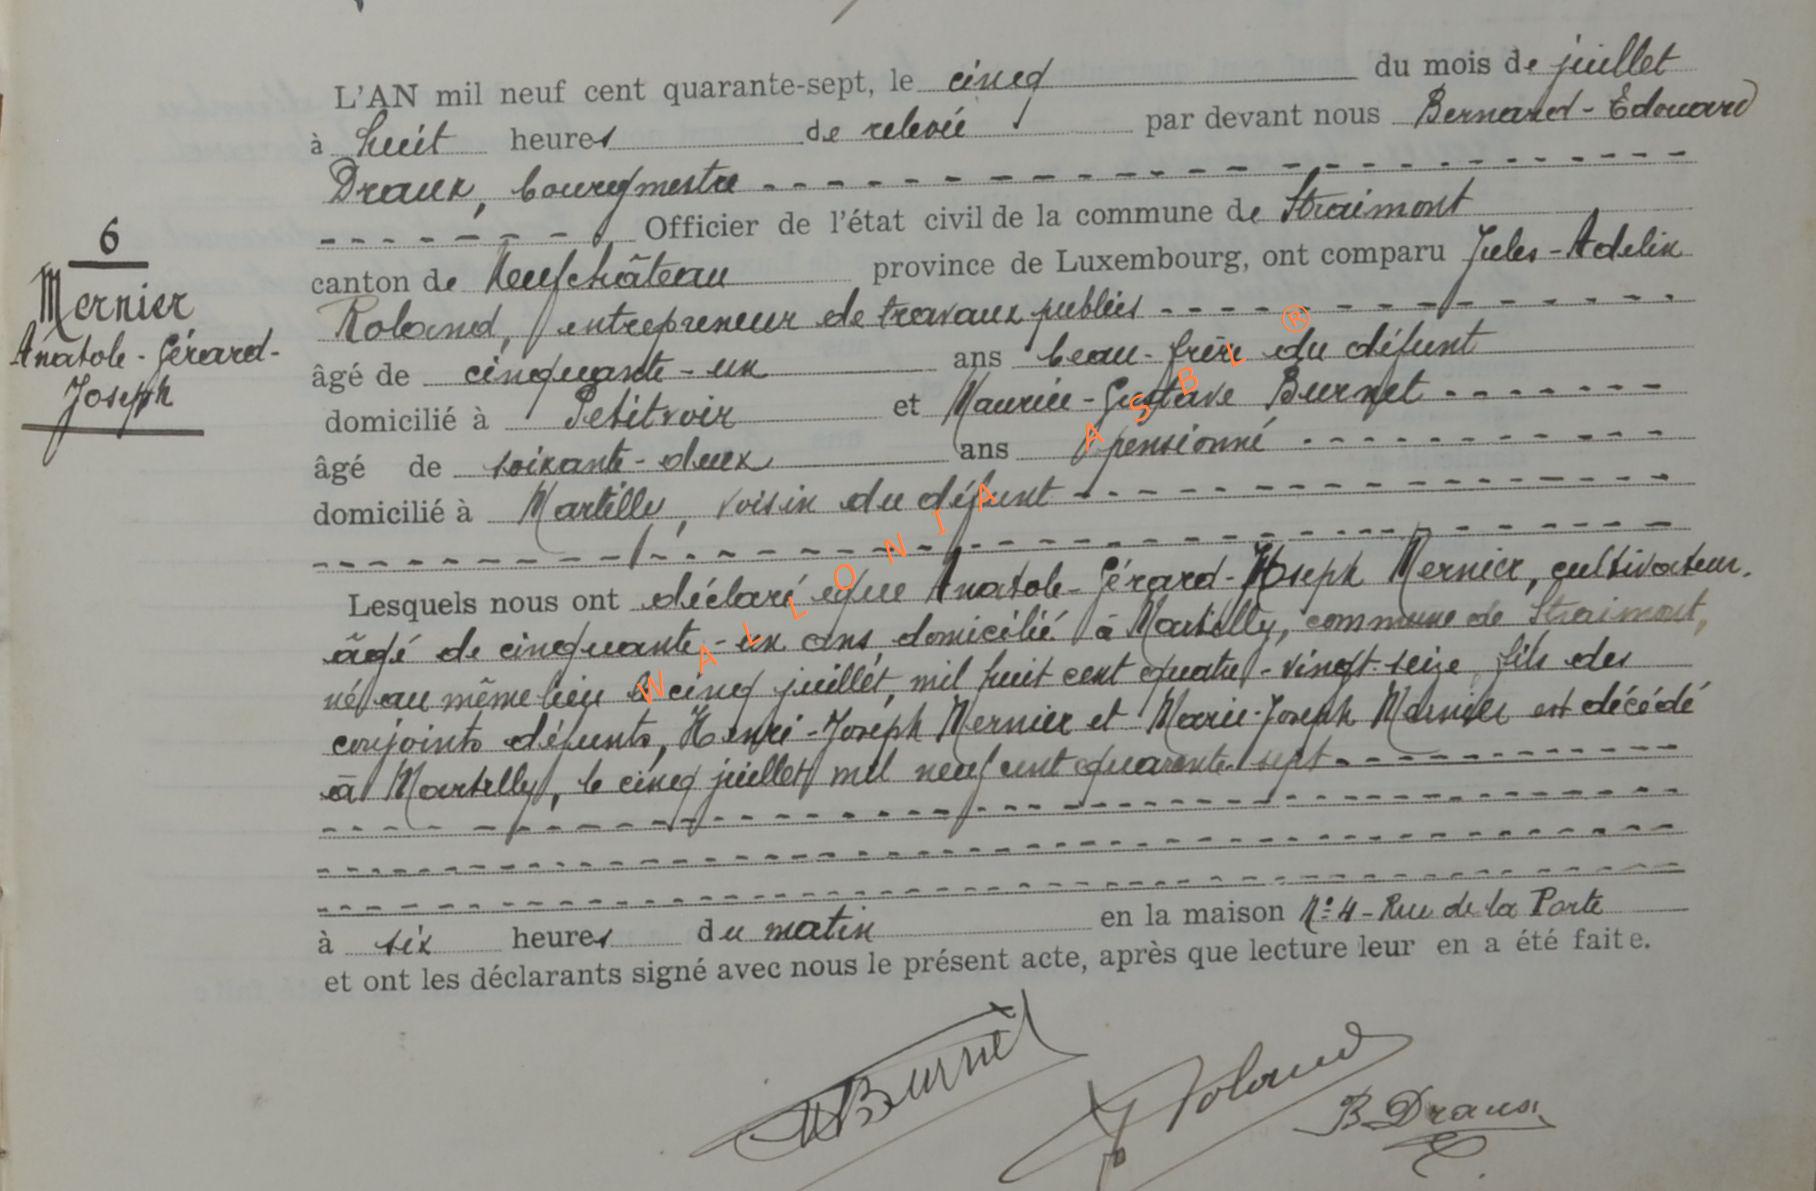 L'AN mil neuf cent quarante-sept, le cinq du mois de juillet
à huit heures de relevée par devant nous Bernard-Edouard
Draux, bourgmestre
Officier de l'état civil de la commune de Straimont
canton de Neufchâteau province de Luxembourg, ont comparu Jules-Adelin
Roland, entrepreneur de travaux publics
âgé de cinquante-un ans beau-frère du défunt
domicilié à Petitvoir et Maurice-Gustave Burnet
âgé de soixante-deux ans pensionné
domicilié à Martilly, voisin du défunt
6
Mernier
Anatole-Gérard-
Joseph
Lesquels nous ont déclaré que Anatole-Gérard-Joseph Mernier, cultivateur.
âgé de cinquante-un ans domicilié à Martilly, commune de Straimont,
né au même lieu le cinq juillet, mil huit cent quatre-vingt-seize, fils des
conjoints défunts, Henri-Joseph Mernier et Marie-Joseph Mernier est décédé
à Martilly, le cinq juillet mil neuf cent quarante-sept
à six heures du matin en la maison N° 4 - Rue de la Porte
et ont les déclarants signé avec nous le présent acte, après que lecture leur en a été faite.
Burnet
J Roland
B. Draux
WALLONIA ASBL ®